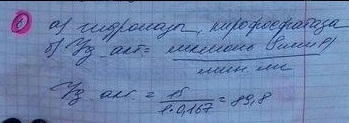 6 а) гидролазы, пирофосфатаза
б) Уд акт = мкмоль /
мин. мг
Уд акт. = 15 / 1·0,167 = 89,8